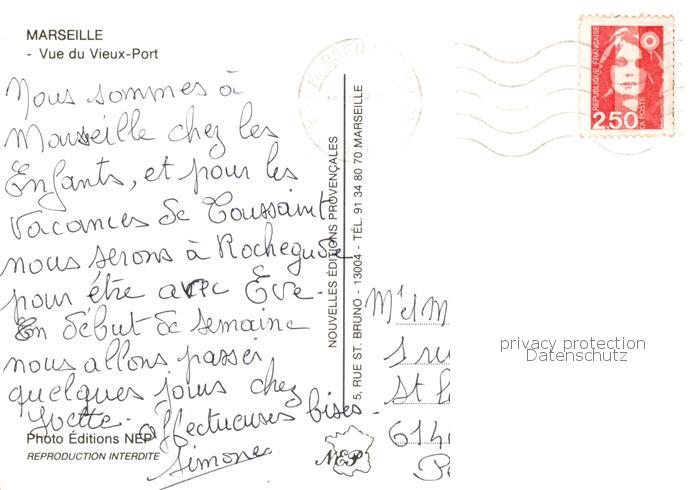 MARSEILLE
- Vue du Vieux-Port
Nous sommes à
Marseille chez les
Enfants, et pour les
Vacances de Toussaint
nous serons à Rochegude
pour être avec Eve.
En début de semaine
nous allons passer
quelques jours chez
Yvette. affectueuses bises.
Simone
Photo Éditions NEP
REPRODUCTION INTERDITE
NOUVELLES ÉDITIONS PROVENÇALES
5, RUE ST. BRUNO - 13004 - TÉL. 91 34 80 70 MARSEILLE
NEP
MARSEILLE
RÉPUBLIQUE FRANÇAISE
LA POSTE
2,50
M et M
St
privacy protection
Datenschutz